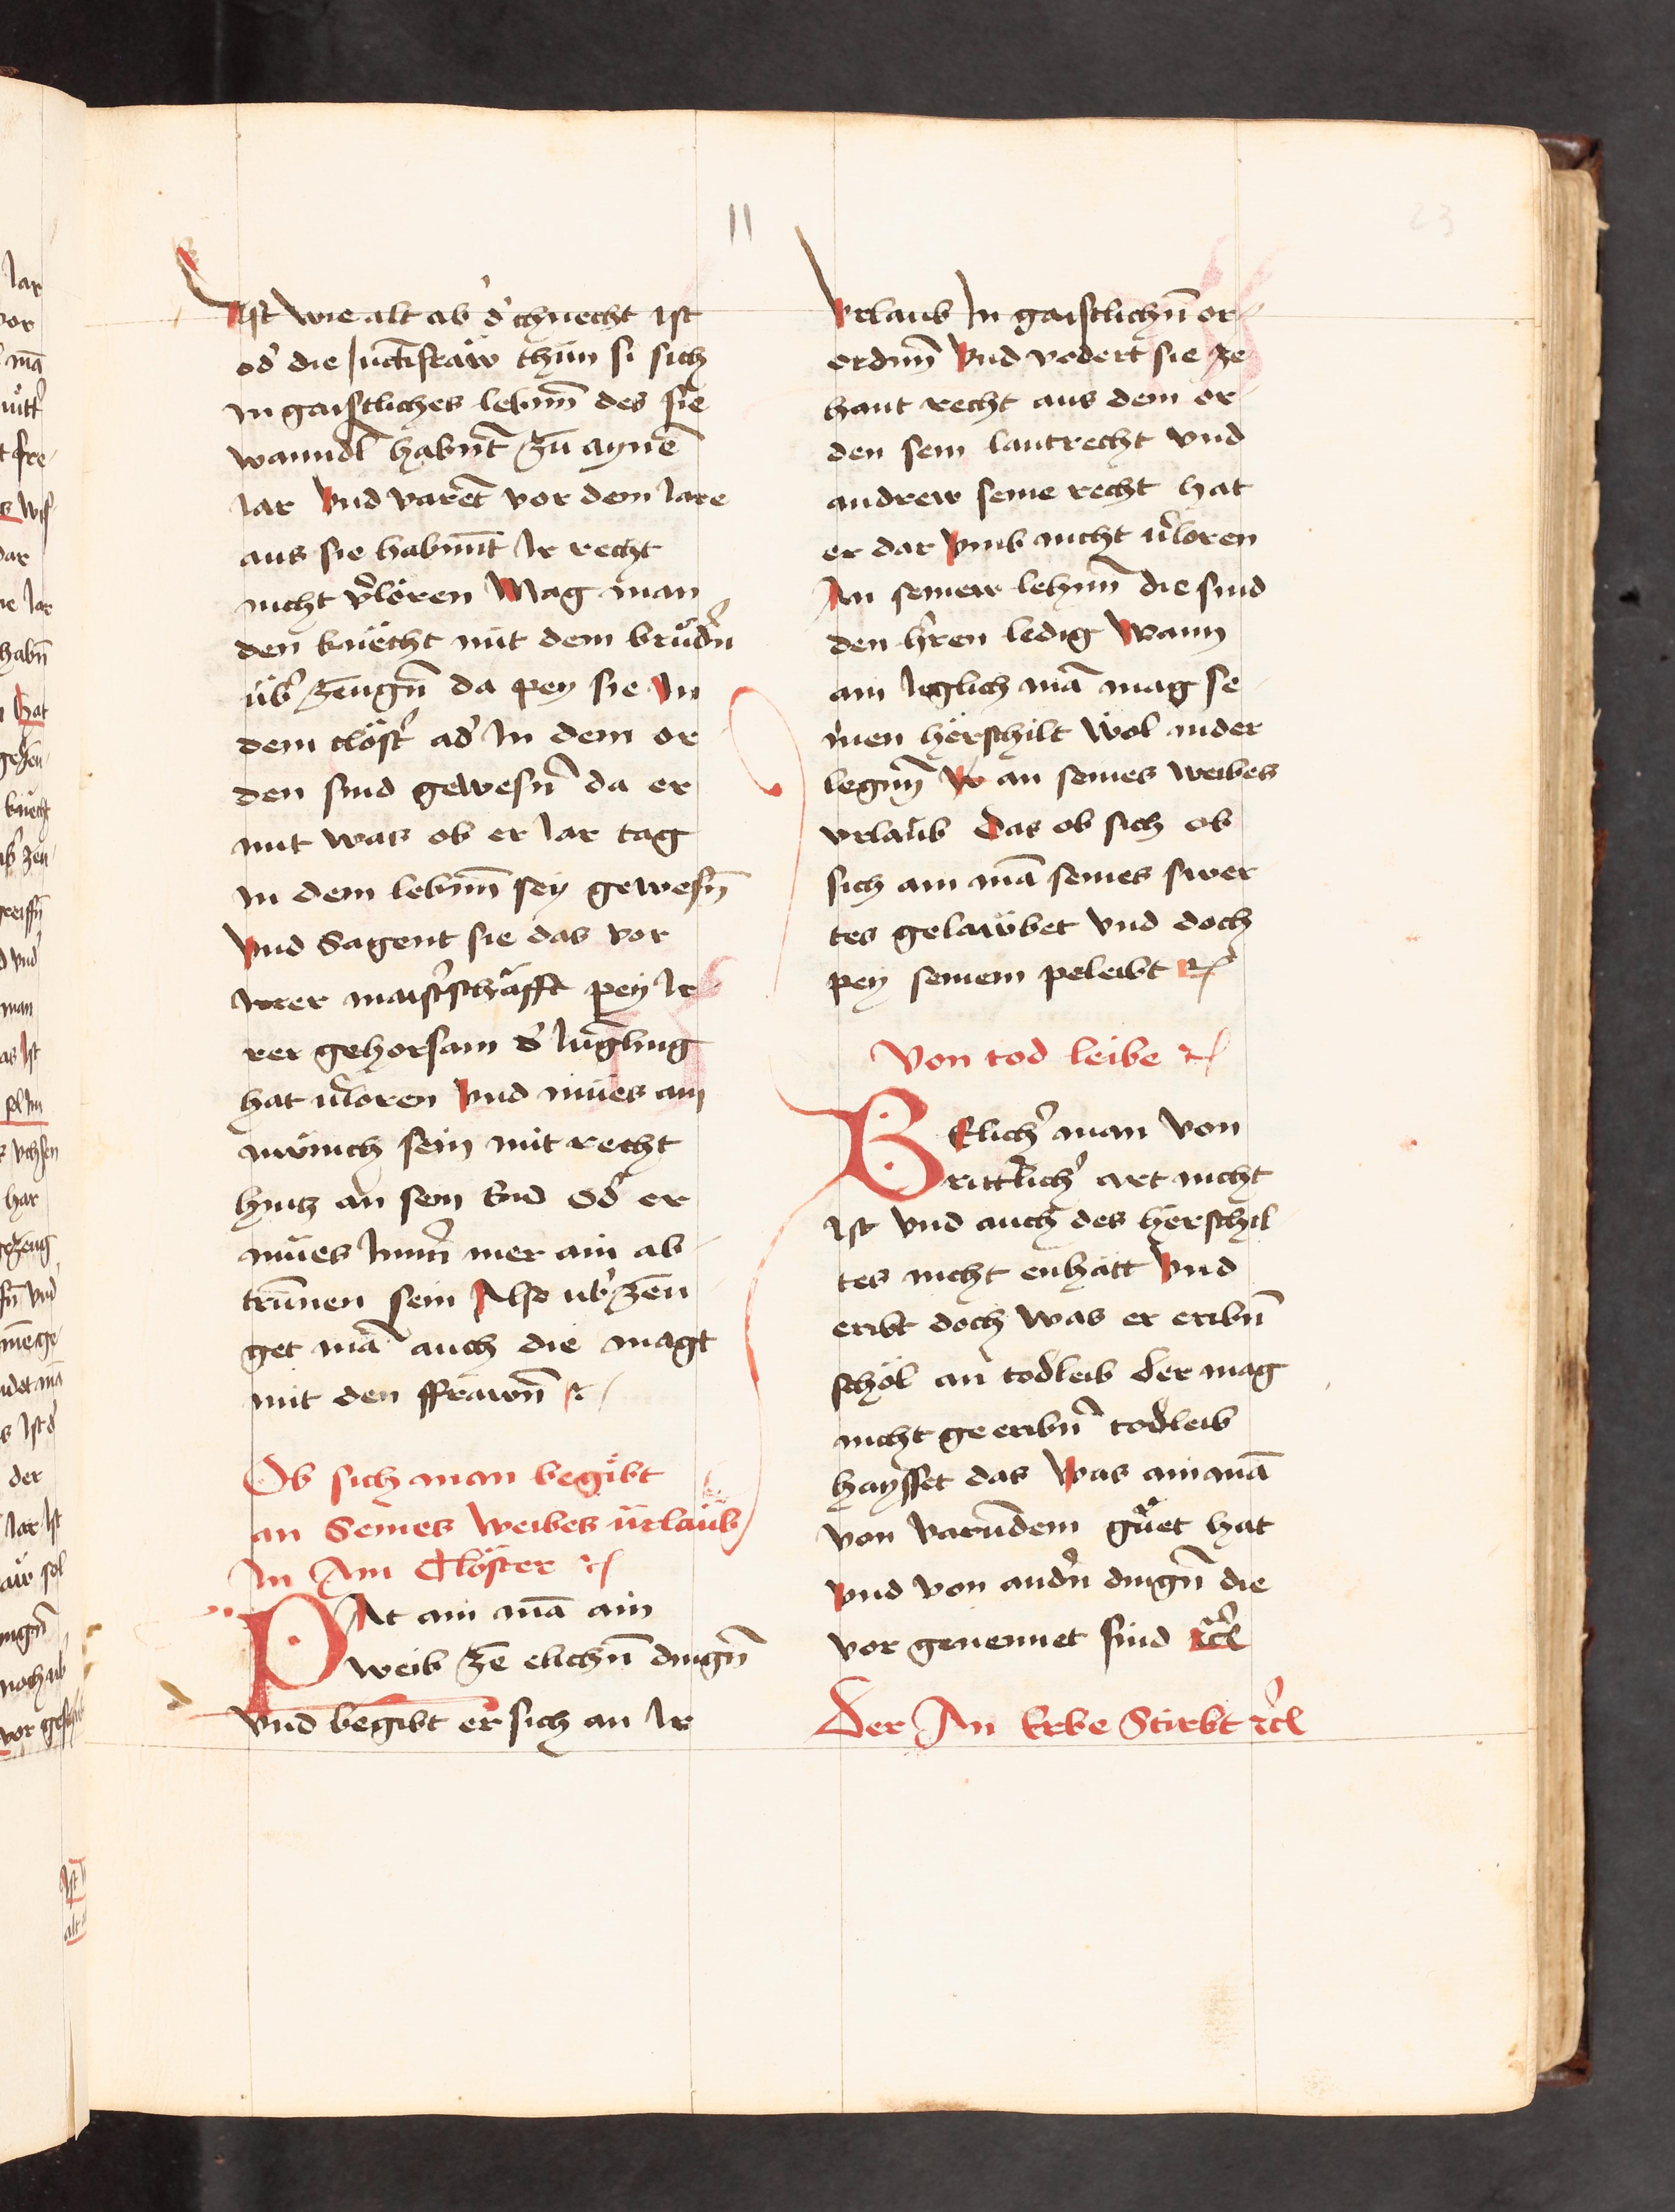 11
23
Ist wie alt ab d' chnecht ist
od' die Junckfraw thun si sich
in gaistliches lebnn̄ des sie
wanndl habnt̄ zu aynē
Jar Vnd varēt vor dem Jare
aus sie habnnt̄ Ir recht
nicht v'lören Mag man
den knëcht mit dem brüd'n
üb' zeugn̄ da pey sie In
dem clöst' ad' In dem or
den sind gewesn̄ da er
mit was ob er Jar tag
in dem lebnn̄ sey gewesn̄
Vnd Sagent sie das vor
Irer maist'schäfft pey Ir
rer gehorsam d' Jungling
hat v'loren Vnd mües ain
münich sein mit recht
hintz an sein End Od' er
müес Imm' mer ain ab-
trünnen sein Also üb'zeu
get mā auch die magt
mit den ffrawn̄ rc
Ob sich man begibt
an Seines Weibes ürlaub
In Ain Clöster rc
HAt ain mā ain
weib ze elichn̄ dingn̄
Vnd begibt er sich an Ir
Vrlaub In gaistlichn̄ or-
ordnn̄ Vnd vodert sie ze
hant recht aus dem or-
den sein lantrecht vnd
andrew seine recht hat
er dar Vmb nicht v'loren
An seinew lehnn̄ die sind
den h'ren ledig Wann
ain iglich mā mag se-
inen hërschilt wol nider
legnn̄ W an seines weibes
vrlaub das ob sich ob
sich ain mā seines swer
tes gelawbet vnd doch
pey seinem peleibt rc
Von tod leibe rc
WElich' man von
rittlich' art nicht
ist vnd auch des herschil
tes nicht enhatt Vnd
eribt doch was er eribn̄
schöl an todleib der mag
nicht ge eribn̄ todleib
haysset das Was ain mā
von varūdem guet hat
Vnd von and'n dingn̄ die
vor genennet sind rc
Der An Erbe Stirbt rc